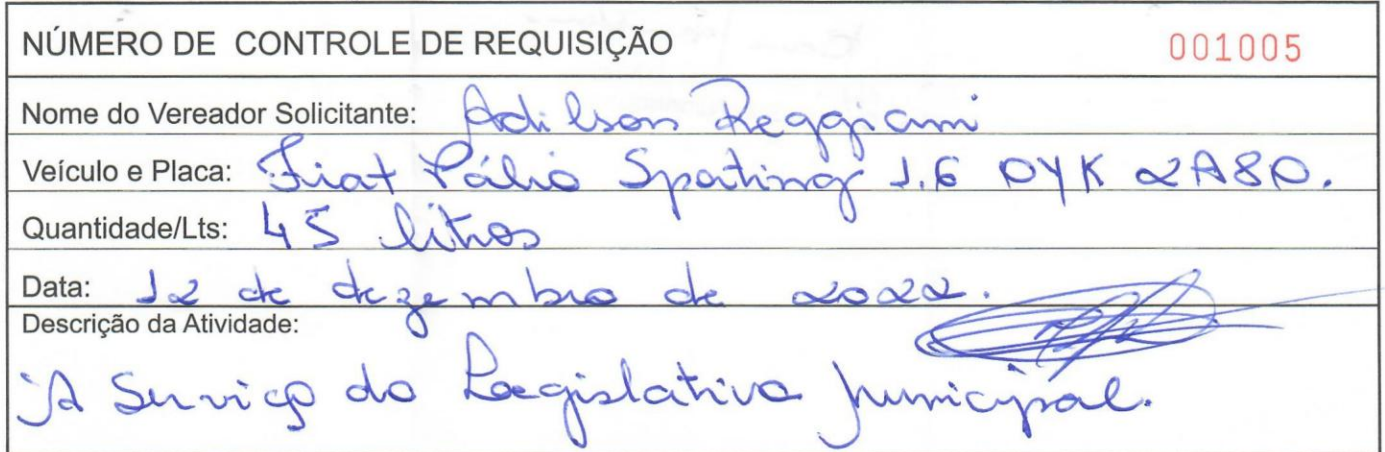 NÚMERO DE CONTROLE DE REQUISIÇÃO 001005
Nome do Vereador Solicitante: Adilson Reggiani
Veículo e Placa: Fiat Pálio Sporting 1.6 DYK 2A80.
Quantidade/Lts: 45 litros
Data: 12 de dezembro de 2022.
Descrição da Atividade:
A Serviço do Legislativo Municipal.